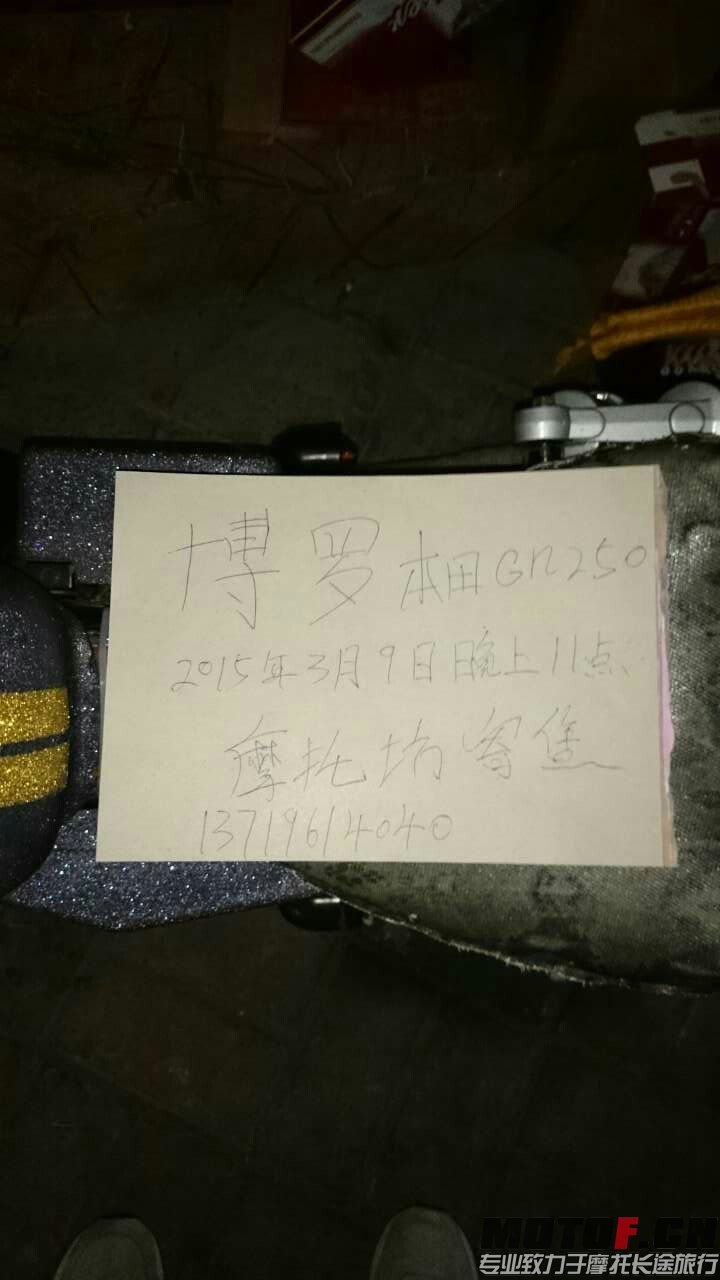 博罗 本田GN250
2015年3月9日晚上11点
摩托坊寄售
13719614040
MOTOF.CN
专业致力于摩托长途旅行